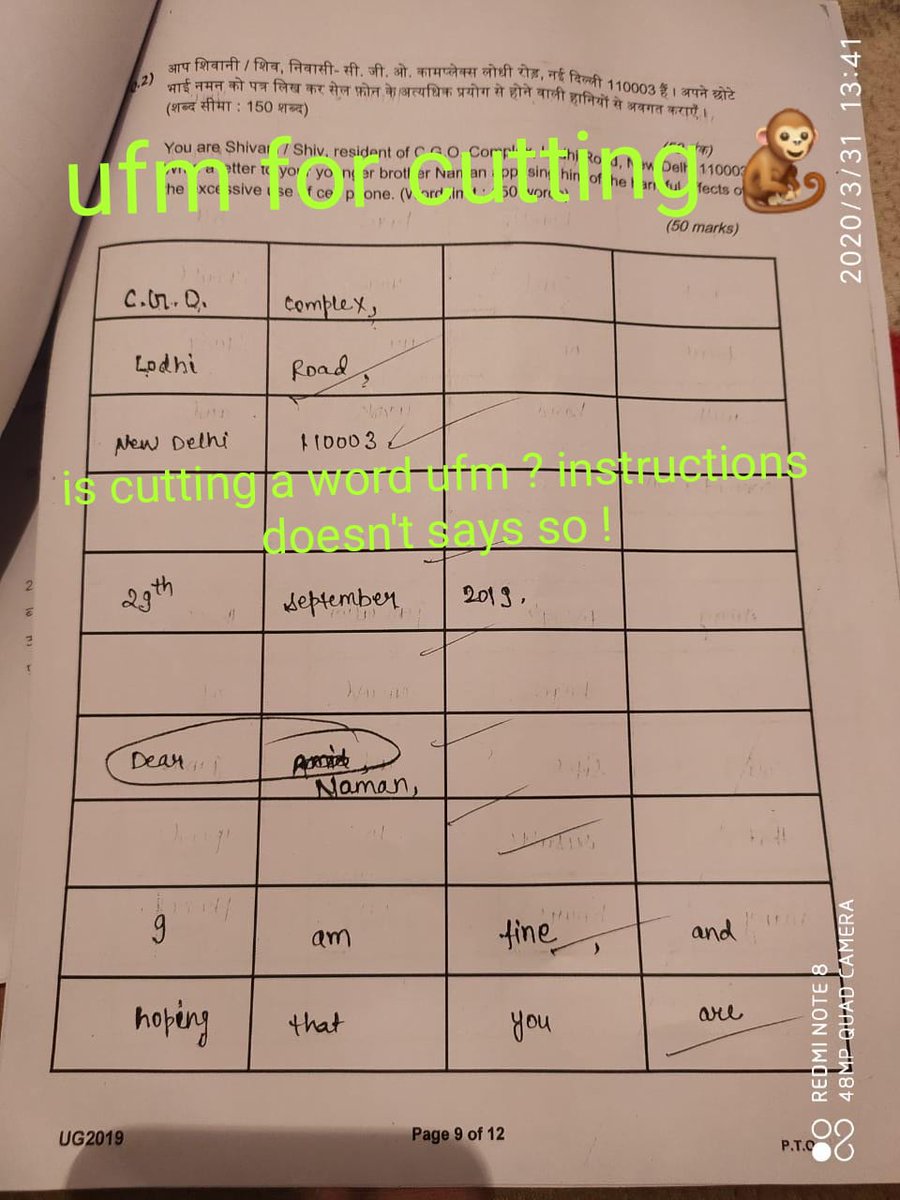 .2) आप शिवानी / शिव, निवासी- सी. जी. ओ. काम्पलेक्स लोधी रोड़, नई दिल्ली 110003 हैं। अपने छोटे
भाई नमन को पत्र लिख कर सेल फ़ोन के अत्यधिक प्रयोग से होने वाली हानियों से अवगत कराएँ।
(शब्द सीमा : 150 शब्द)
You are Shivani / Shiv, resident of C.G.O. Complex Lodhi Road, New Delhi 110003
a letter to your younger brother Naman apprising him of the harmful effects of
the excessive use of cell phone.
(50 marks)
ufm for cutting
C.G.O. Complex,
Lodhi Road,
New Delhi 110003
is cutting a word ufm ? instructions
doesn't says so !
29th September 2019.
Dear
Naman,
I am fine, and
hoping that you are
UG2019 Page 9 of 12 P.T.O
2020/3/31 13:41
REDMI NOTE 8
48MP QUAD CAMERA